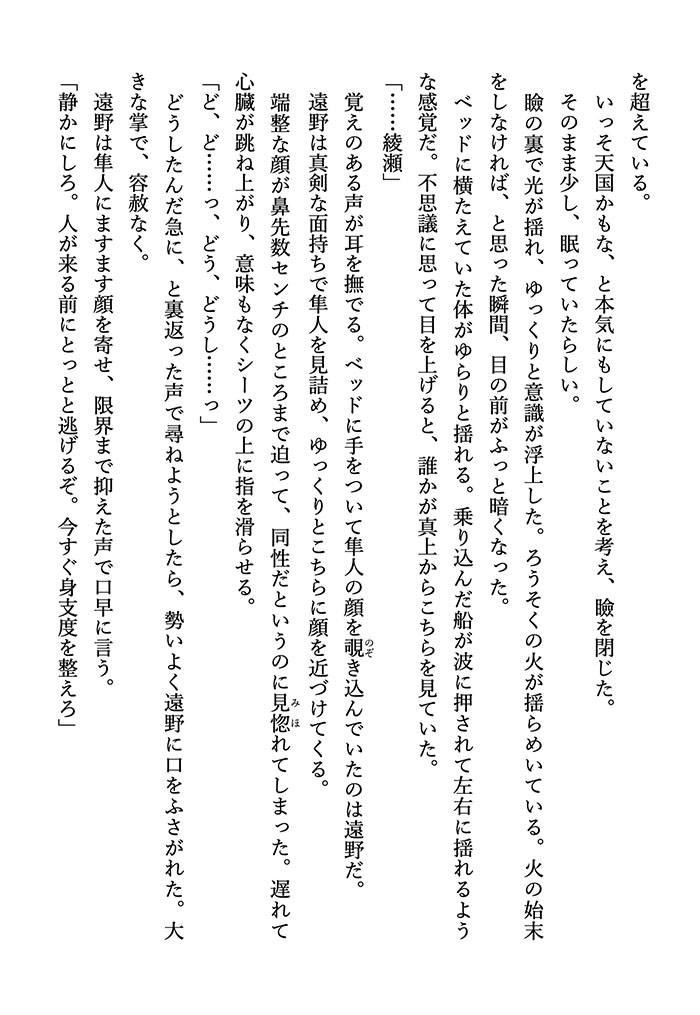 を超えている。
　いっそ天国かもな、と本気にもしていないことを考え、瞼を閉じた。
　そのまま少し、眠っていたらしい。
　瞼の裏で光が揺れ、ゆっくりと意識が浮上した。ろうそくの火が揺らめいている。火の始末
をしなければ、と思った瞬間、目の前がふっと暗くなった。
　ベッドに横たえていた体がゆらりと揺れる。乗り込んだ船が波に押されて左右に揺れるよう
な感覚だ。不思議に思って目を上げると、誰かが真上からこちらを見ていた。
「……綾瀬」
　覚えのある声が耳を撫でる。ベッドに手をついて隼人の顔を覗き込んでいたのは遠野だ。
　遠野は真剣な面持ちで隼人を見詰め、ゆっくりとこちらに顔を近づけてくる。
　端整な顔が鼻先数センチのところまで迫って、同性だというのに見惚れてしまった。遅れて
心臓が跳ね上がり、意味もなくシーツの上に指を滑らせる。
「ど、ど……っ、どう、どうし……っ」
　どうしたんだ急に、と裏返った声で尋ねようとしたら、勢いよく遠野に口をふさがれた。大
きな掌で、容赦なく。
　遠野は隼人にますます顔を寄せ、限界まで抑えた声で口早に言う。
「静かにしろ。人が来る前にとっとと逃げるぞ。今すぐ身支度を整えろ」